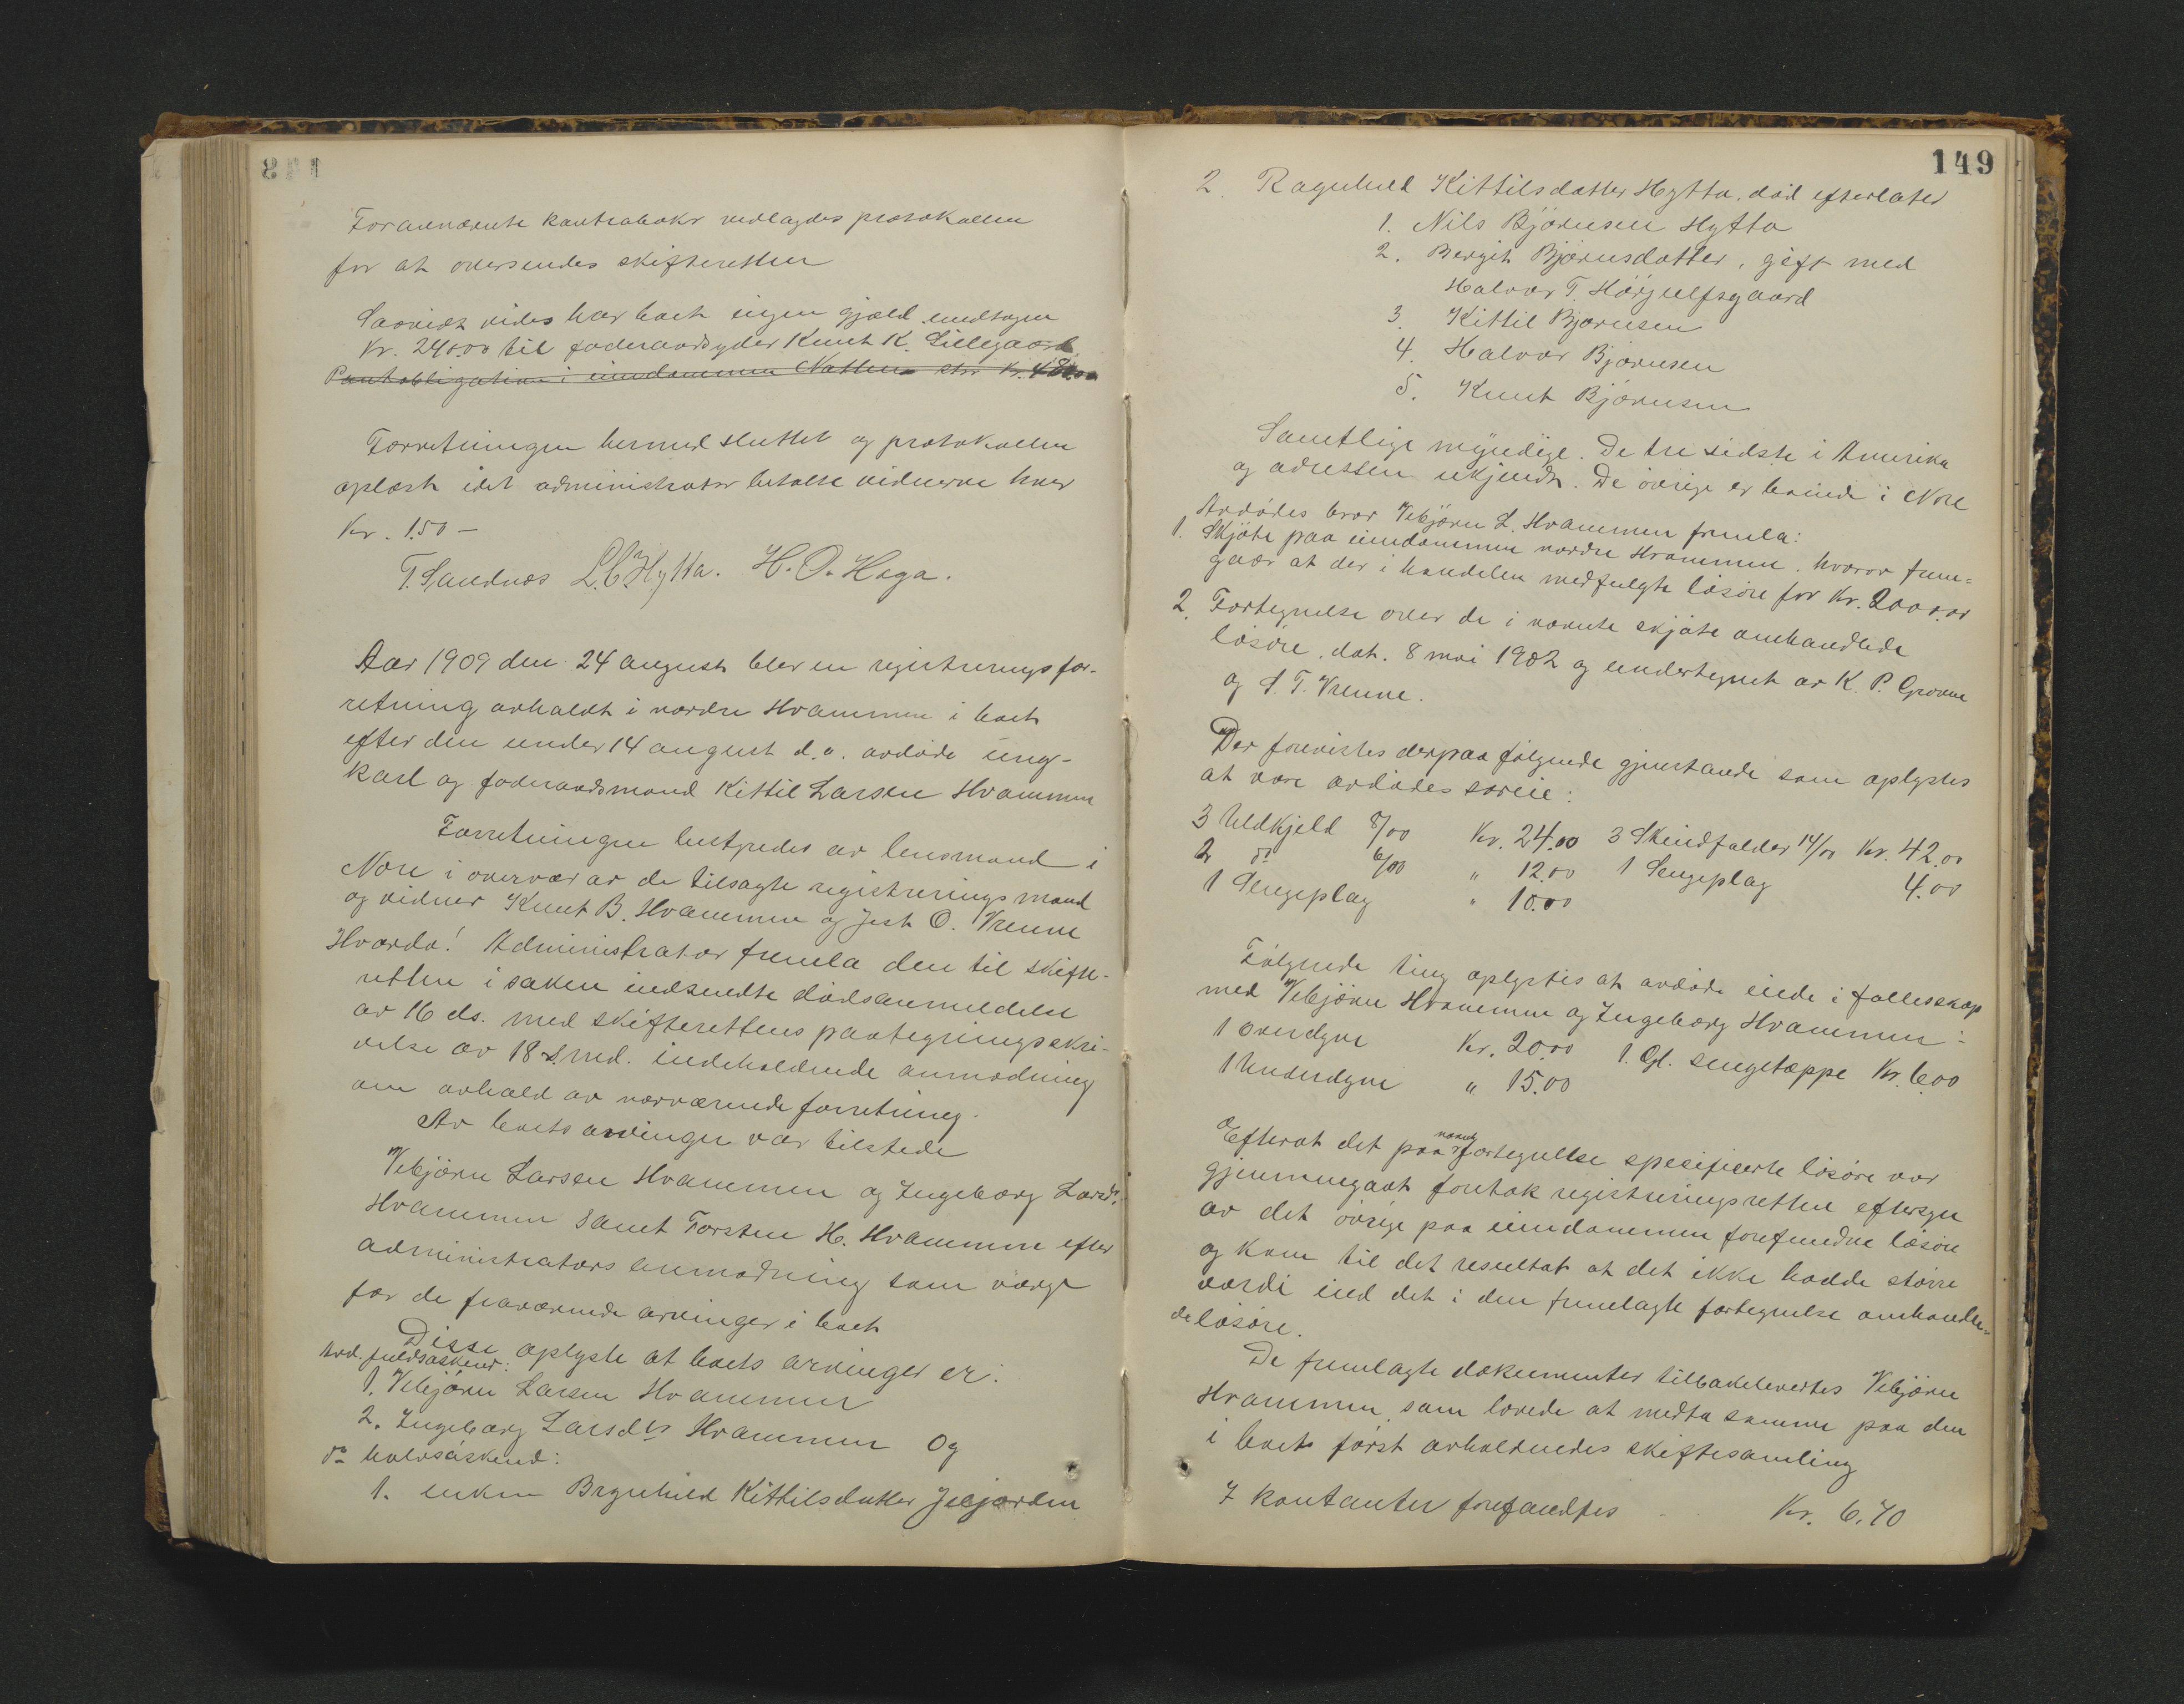 Foranævnte kontrabøker vedlagdes protokollen
for at oversendes skifteretten
Saavidt vides har boet ingen gjæld undtagen
Kr. 240.00 til føderaadsyder Knut K. Lillegaard
Pantobligation i eiendommen Natten stor Kr.
Forretningen hermed sluttet og protokollen
oplæst idet administrator betalte vidnerne hver
Kr. 1.50 –
T. Sandnes L.C. Hytta. H. O. Haga.
Aar 1909 den 24 august blev en registreringsfor-
retning avholdt i nordre Hvammen i boet
efter den under 14 august d.a. avdøde ung-
karl og føderaadsmand Kittil Larsen Hvammen
Forretningen bestyredes av lensmand i
Nore i overvær av de tilsagte registreringsmænd
og vidner Knut B. Hvammen og Jest O. Vrenne
Hvorda! Administrator fremla den til skifte-
retten i saken indsendte dødsanmeldelse
av 16 ds. med skifterettens paategningsskri-
velse av 18 s.md. indeholdende anmodning
om avhold av nærværende forretning.
Av boets arvinger var tilstede
Vebjørn Larsen Hvammen og Ingeborg Larsdr.
Hvammen samt Torsten H. Hvammen efter
administrators anmodning som værge
for de fraværende arvinger i boet
Disse oplyste at boets arvinger er:
avd. fuldsøskend:
1. Vebjørn Larsen Hvammen
2. Ingeborg Larsdtr Hvammen og
do halvsøskend:
1. enken Brynhild Kittilsdatter
149
2. Ragnhild Kittilsdatter Hytta, død efterlater
1. Nils Bjørnsen Hytta
2. Bergit Bjørnsdatter, gift med
Halvor T. Hørgulfsgaard
3. Kittil Bjørnsen
4. Halvor Bjørnsen
5. Knut Bjørnsen
Samtlige myndige. De tre sidste i Amerika
og adressen ukjendt. De øvrige er boende i Nore
Avdødes bror Vebjørn L. Hvammen fremla:
1. Skjøte paa eiendommen nordre Hvammen, hvorav frem-
gaar at der i handelen medfulgte løsøre for Kr. 200.00
2. Fortegnelse over de i nævnte skjøte omhandlede
løsøre, dat. 8 mai 1902 og undertegnet av K. P. Grovene
og S. T. Vrenne.
Der forevistes derpaa følgende gjenstande som oplystes
at være avdødes særeie:
3 Uldkjeld 8/00 Kr. 24.00 3 Skindfelder 14/00 Kr. 42.00
2 do 6/00 " 12.00 1 Sengeplag 4.00
1 Sengeplag " 10.00
Følgende ting oplystes at avdøde eiede i fællesskap
med Vebjørn Hvammen og Ingeborg Hvammen:
1 Overdyne Kr. 20.00 1. Gl. sengetæppe Kr. 6.00
1 Underdyne " 15.00
Efterat det paa nævnte fortegnelse specificerte løsøre var
gjennemgaat foretok registreringsretten eftersyn
av det øvrige paa eiendommen forefundne løsøre
og kom til det resultat at det ikke hadde større
værdi end det i den fremlagte fortegnelse omhandle-
de løsøre.
De fremlagte dokumenter tilbakeleverte Vebjørn
Hvammen, som lovede at medta samme paa den
i boet først avholdendes skiftesamling
I kontanter forefandtes Kr. 6.70